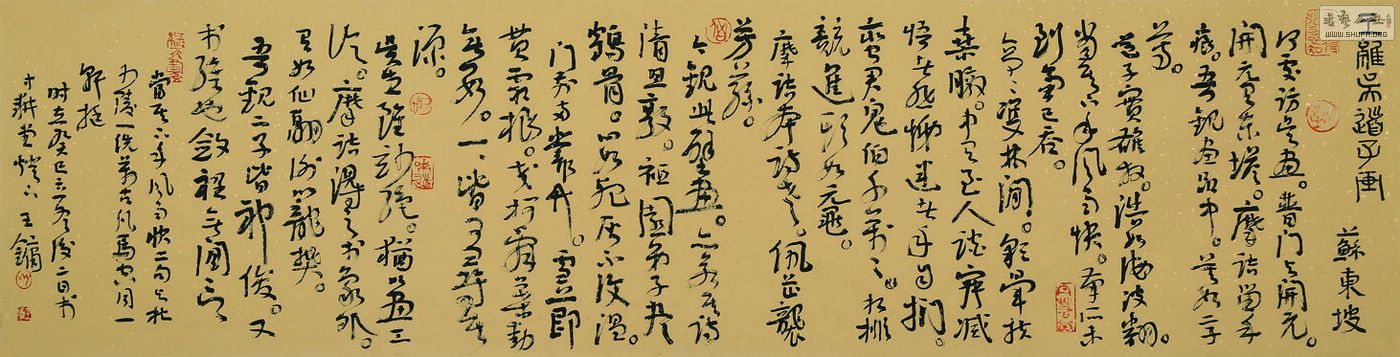 王維吳道子画
蘇東坡
何處訪吳画。普門与開元。
開元有東塔。摩詰留手
痕。吾觀画品中。莫如二子
尊。
道子實雄放。浩如海波翻。
當其下手風雨快。筆所未
到氣已吞。
亭亭雙林間。彩暈扶
桑暾。中有至人談寂滅
悟者悲涕迷者手自捫。
蠻君鬼伯千萬萬。相排
競進頭如黿。
摩詰本詩老。佩芷襲
芳蓀。
今觀此壁画。亦若其詩
清且敦。祗園弟子盡
鶴骨。心如死灰不復溫。
門前兩叢竹。雪節
貫霜根。交柯亂葉動
無數。一一皆可尋其
源。
吳生雖妙絕。猶以画工
論。摩詰得之於象外。
有如仙翮謝籠樊。
吾觀二子皆神俊。又
於維也斂衽無間言
當其下手風雨快二句与杜
少陵一洗萬古凡馬空同一
挺
時在癸巳立冬後二日書
寸耕堂燈下王鏞
WWW.SHUFA.ORG